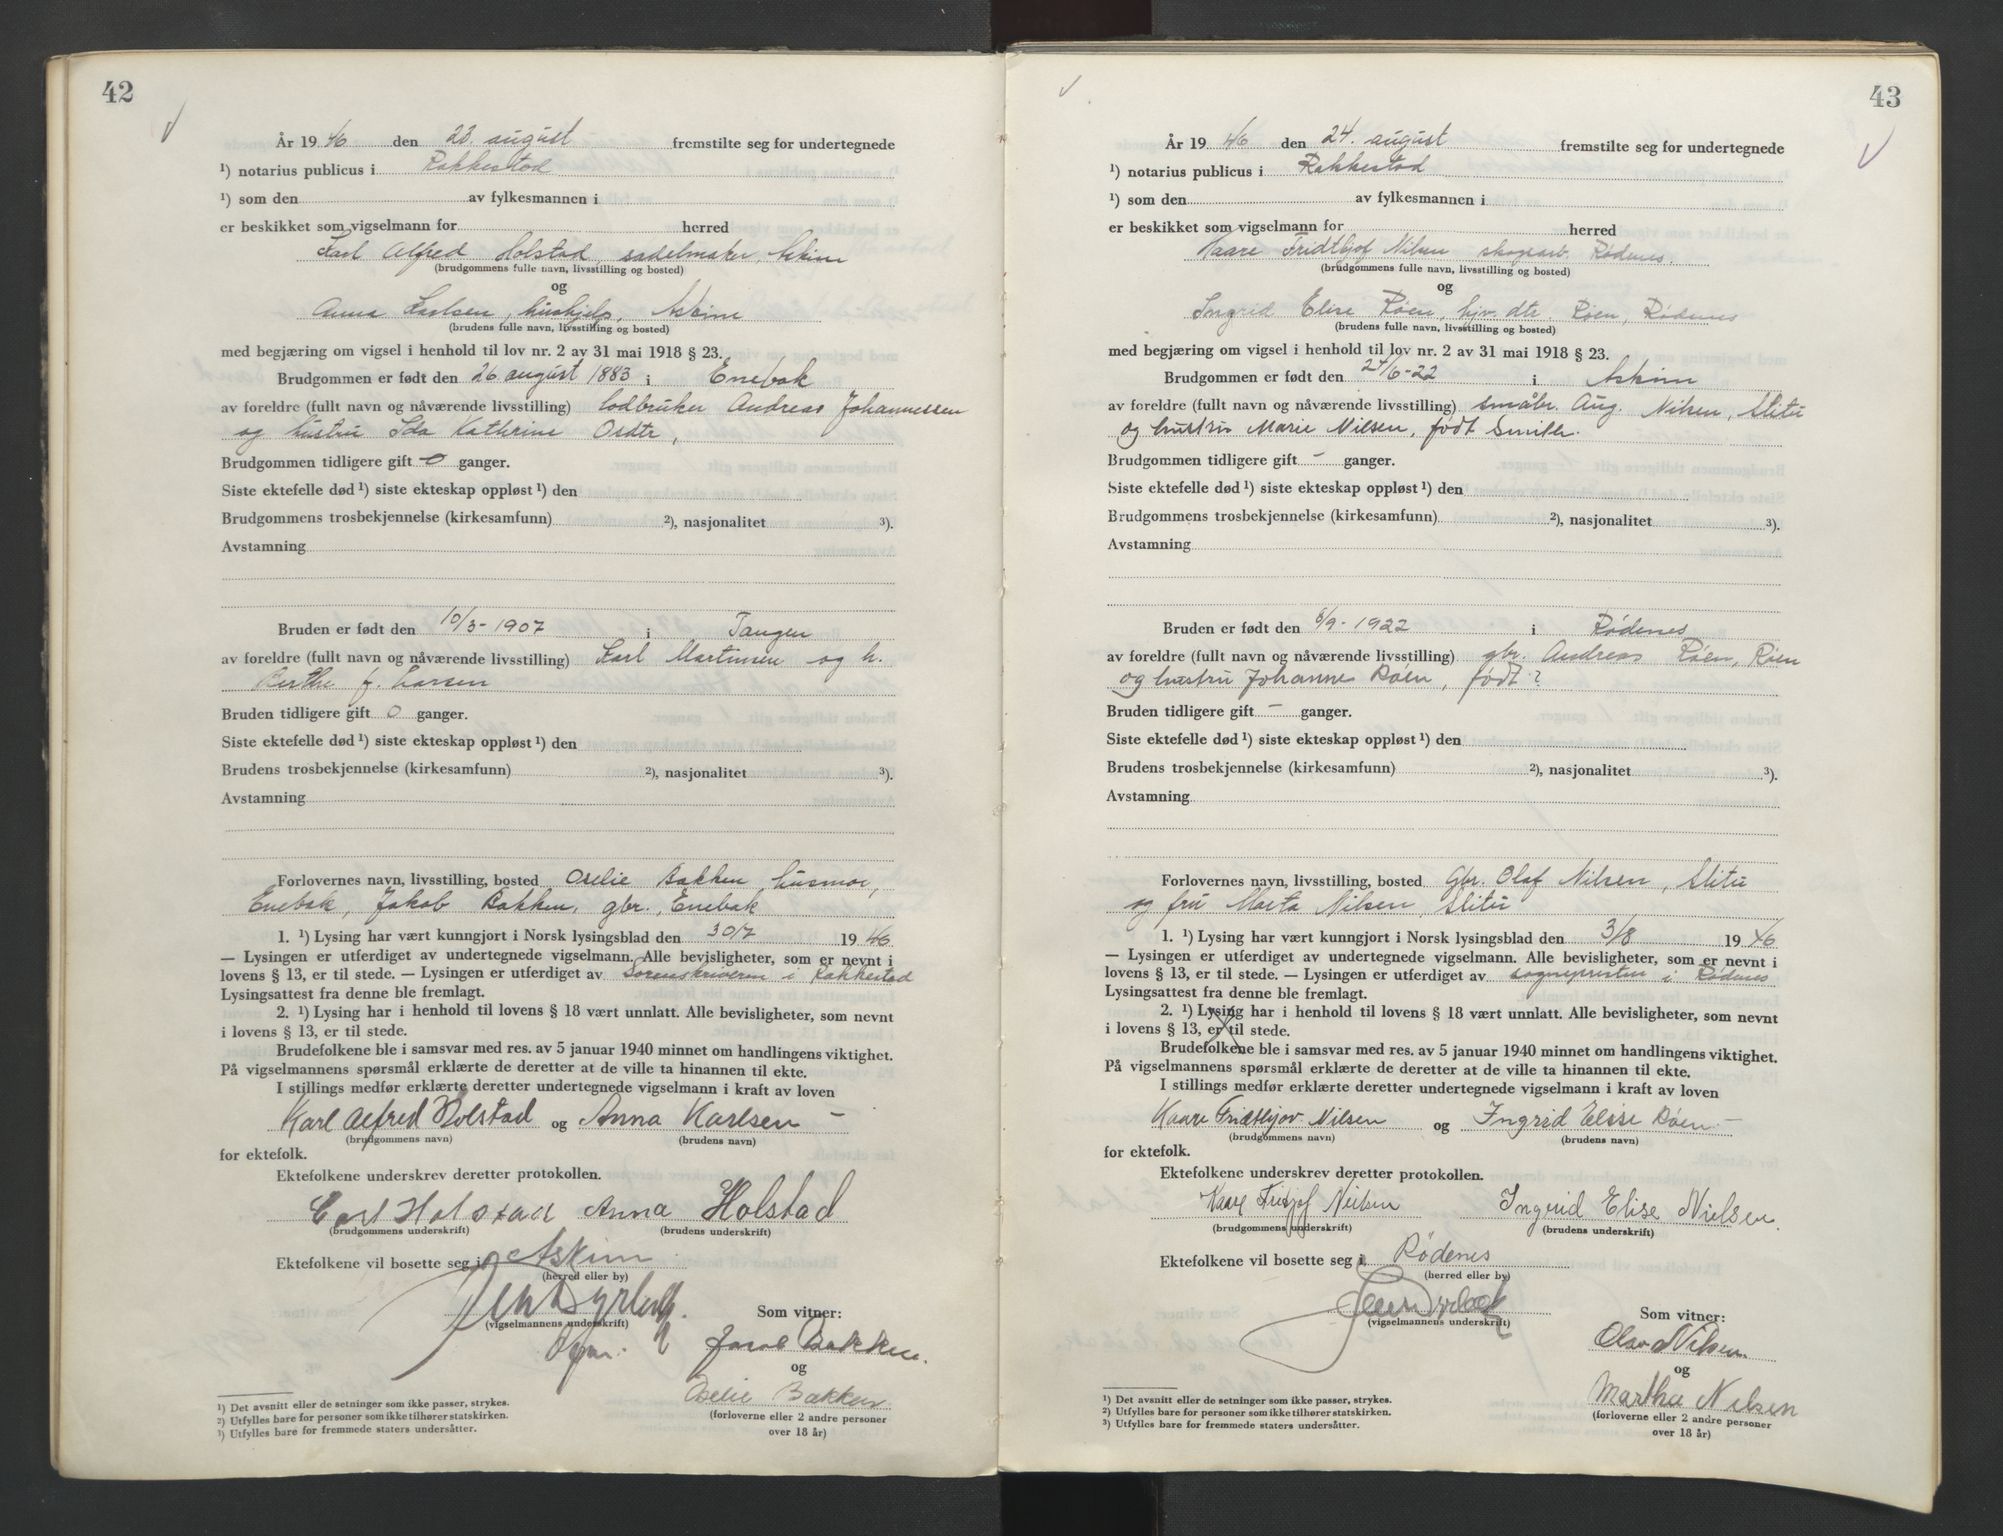 42
År 19 46 den 23. august fremstilte seg for undertegnede
¹) notarius publicus i Rakkestad
¹) som den av fylkesmannen i
er beskikket som vigselmann for herred
Karl Alfred Holstad, sadelmaker, Askim
(brudgommens fulle navn, livsstilling og bosted)
og
Anna Karlsen, hushjelp, Askim
(brudens fulle navn, livsstilling og bosted)
med begjæring om vigsel i henhold til lov nr. 2 av 31 mai 1918 § 23.
Brudgommen er født den 26 august 1883 i Enebak
av foreldre (fullt navn og nåværende livsstilling) lodbruker Andreas Johannessen
og hustru Ida Kathrine Orsdtr,
Brudgommen tidligere gift 0 ganger.
Siste ektefelle død ¹) siste ekteskap oppløst ¹) den
Brudgommens trosbekjennelse (kirkesamfunn) ²), nasjonalitet ³).
Avstamning
Bruden er født den 10/3-1907 i Tangen
av foreldre (fullt navn og nåværende livsstilling) Karl Martinsen og h.
Berthe f. Larsen
Bruden tidligere gift 0 ganger.
Siste ektefelle død ¹) siste ekteskap oppløst ¹) den
Brudens trosbekjennelse (kirkesamfunn) ²), nasjonalitet ³).
Avstamning
Forlovernes navn, livsstilling, bosted Oselie Bakken husmor,
Enebak, Jakob Bakken, gbr., Enebak
1. ¹) Lysing har vært kunngjort i Norsk lysingsblad den 30/7 19 46
— Lysingen er utferdiget av undertegnede vigselmann. Alle bevisligheter, som er nevnt i
lovens § 13, er til stede. — Lysingen er utferdiget av Sorenskriveren i Rakkestad
Lysingsattest fra denne ble fremlagt.
2. ¹) Lysing har i henhold til lovens § 18 vært unnlatt. Alle bevisligheter, som nevnt
i lovens § 13, er til stede.
Brudefolkene ble i samsvar med res. av 5 januar 1940 minnet om handlingens viktighet.
På vigselmannens spørsmål erklærte de deretter at de ville ta hinannen til ekte.
I stillings medfør erklærte deretter undertegnede vigselmann i kraft av loven
Karl Alfred Holstad og Anna Karlsen —
(brudgommens navn) (brudens navn)
for ektefolk.
Ektefolkene underskrev deretter protokollen.
Carl Holstad Anna Holstad
(brudgommens underskrift) (brudens underskrift)
Ektefolkene vil bosette seg i Askim
(herred eller by)
Som vitner:
(vigselmannens underskrift)
Jacob Bakken.
og
Oselie Bakken
(forloverne eller 2 andre personer
over 18 år)
¹) Det avsnitt eller de setninger som ikke passer, strykes.
²) Utfylles bare for personer som ikke tilhører statskirken.
³) Utfylles bare for fremmede staters undersåtter.
43
År 19 46 den 24. august fremstilte seg for undertegnede
¹) notarius publicus i Rakkestad
¹) som den av fylkesmannen i
er beskikket som vigselmann for herred
Kaare Fridthjof Nilsen skogsarb. Rødenes.
(brudgommens fulle navn, livsstilling og bosted)
og
Ingrid Elise Røen, hjv. dtr. Røen, Rødenes
(brudens fulle navn, livsstilling og bosted)
med begjæring om vigsel i henhold til lov nr. 2 av 31 mai 1918 § 23.
Brudgommen er født den 24/6-22 i Askim
av foreldre (fullt navn og nåværende livsstilling) småbr. Aug. Nilsen, Slitu
og hustru Marie Nilsen, født Smith.
Brudgommen tidligere gift - ganger.
Siste ektefelle død ¹) siste ekteskap oppløst ¹) den
Brudgommens trosbekjennelse (kirkesamfunn) ²), nasjonalitet ³).
Avstamning
Bruden er født den 6/9-1922 i Rødenes
av foreldre (fullt navn og nåværende livsstilling) gbr. Andreas Røen, Røen
og hustru Johanne Røen, født ?
Bruden tidligere gift - ganger.
Siste ektefelle død ¹) siste ekteskap oppløst ¹) den
Brudens trosbekjennelse (kirkesamfunn) ²), nasjonalitet ³).
Avstamning
Forlovernes navn, livsstilling, bosted Gbr. Olaf Nilsen, Slitu
og fru Marta Nilsen, Slitu
1. ¹) Lysing har vært kunngjort i Norsk lysingsblad den 3/8 19 46
— Lysingen er utferdiget av undertegnede vigselmann. Alle bevisligheter, som er nevnt i
lovens § 13, er til stede. — Lysingen er utferdiget av sognepresten i Rødenes
Lysingsattest fra denne ble fremlagt.
2. ¹) Lysing har i henhold til lovens § 18 vært unnlatt. Alle bevisligheter, som nevnt
i lovens § 13, er til stede.
Brudefolkene ble i samsvar med res. av 5 januar 1940 minnet om handlingens viktighet.
På vigselmannens spørsmål erklærte de deretter at de ville ta hinannen til ekte.
I stillings medfør erklærte deretter undertegnede vigselmann i kraft av loven
Kaare Fridthjov Nilsen og Ingrid Elise Røen —
(brudgommens navn) (brudens navn)
for ektefolk.
Ektefolkene underskrev deretter protokollen.
Kaare Fritjof Nielsen Ingrid Elise Nielsen.
(brudgommens underskrift) (brudens underskrift)
Ektefolkene vil bosette seg i Rødenes
(herred eller by)
Som vitner:
(vigselmannens underskrift)
Olav Nilsen.
og
Martha Nilsen
(forloverne eller 2 andre personer
over 18 år)
¹) Det avsnitt eller de setninger som ikke passer, strykes.
²) Utfylles bare for personer som ikke tilhører statskirken.
³) Utfylles bare for fremmede staters undersåtter.